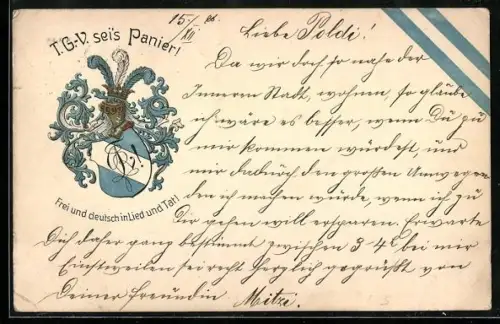 T.G.-V. sei's Panier!
Frei und deutsch in Lied und Tat!
15./XII
Liebe Poldi!
Da wir doch so nahe der
Inneren Stadt, wohnen, so glaube
ich wäre es besser, wenn Du zu
mir kommen würdest, und
mir dadurch den großen Umweg
den ich machen würde, wenn ich zu
Dir gehen will ersparen. Erwarte
Dich daher ganz bestimmt zwischen 3-4h bei mir
Einstweilen sei recht herzlich gegrüßt von
Deiner Freundin Mitzi.